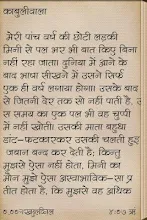 काबुलीवाला
मेरी पांच वर्ष की छोटी लड़की
मिनी से पल भर भी बात किए बिना
नहीं रहा जाता। दुनिया में आने के
बाद भाषा सीखने में उसने सिर्फ
एक ही वर्ष लगाया होगा। उसके बाद
से जितनी देर तक सो नहीं पाती है, उ
स समय का एक पल भी वह चुप्पी
में नहीं खोती। उसकी माता बहुधा
डांट-फटकारकर उसकी चलती हुई
जबान बन्द कर देती है; किन्तु
मुझसे ऐसा नहीं होता, मिनी का
मौन मुझे ऐसा अस्वाभाविक-सा प्र
तीत होता है, कि मुझसे वह अधिक